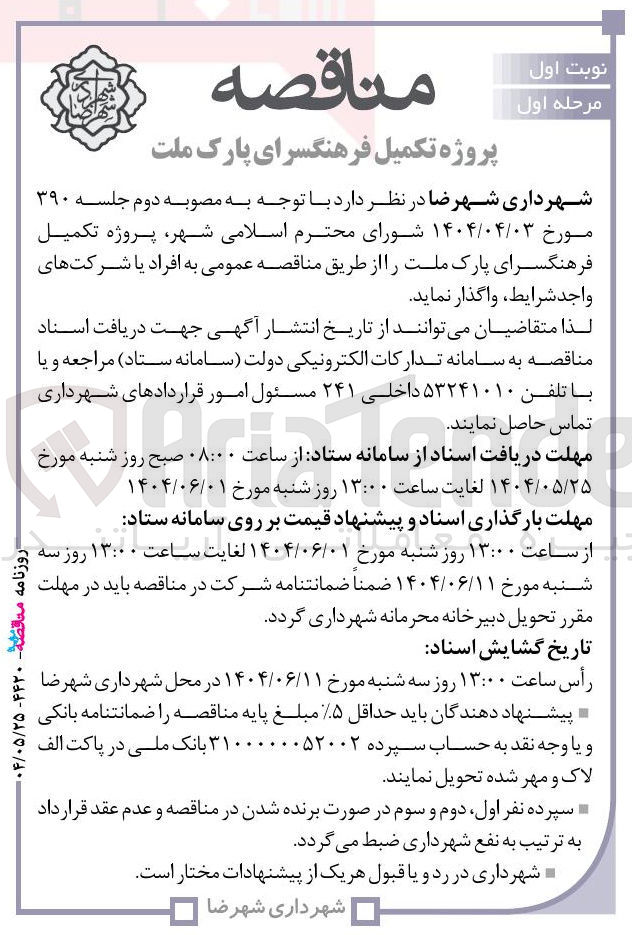 نوبت اول
مرحله اول
مناقصه
پروژه تکمیل فرهنگسرای پارک ملت
شهرداری شهرضا در نظر دارد با توجه به مصوبه دوم جلسه ۳۹۰
مورخ ۱۴۰۴/۰۴/۰۳ شورای محترم اسلامی شهر، پروژه تکمیل
فرهنگسرای پارک ملت را از طریق مناقصه عمومی به افراد یا شرکت‌های
واجدشرایط، واگذار نماید.
لذا متقاضیان می‌توانند از تاریخ انتشار آگهی جهت دریافت اسناد
مناقصه به سامانه تدارکات الکترونیکی دولت (سامانه ستاد) مراجعه و یا
با تلفن ۵۳۲۴۱۰۱۰ داخلی ۲۴۱ مسئول امور قراردادهای شهرداری
تماس حاصل نمایند.
مهلت دریافت اسناد از سامانه ستاد: از ساعت ۰۸:۰۰ صبح روز شنبه مورخ
۱۴۰۴/۰۵/۲۵ لغایت ساعت ۱۳:۰۰ روز شنبه مورخ ۱۴۰۴/۰۶/۰۱
مهلت بارگذاری اسناد و پیشنهاد قیمت بر روی سامانه ستاد:
از ساعت ۱۳:۰۰ روز شنبه مورخ ۱۴۰۴/۰۶/۰۱ لغایت ساعت ۱۳:۰۰ روز سه
شنبه مورخ ۱۴۰۴/۰۶/۱۱ ضمناً ضمانتنامه شرکت در مناقصه باید در مهلت
مقرر تحویل دبیرخانه محرمانه شهرداری گردد.
تاریخ گشایش اسناد:
رأس ساعت ۱۳:۰۰ روز سه شنبه مورخ ۱۴۰۴/۰۶/۱۱ در محل شهرداری شهرضا
■ پیشنهاد دهندگان باید حداقل ۵٪ مبلغ پایه مناقصه را ضمانتنامه بانکی
و یا وجه نقد به حساب سپرده ۳۱۰۰۰۰۰۰۵۲۰۰۲ بانک ملی در پاکت الف
لاک و مهر شده تحویل نمایند.
■ سپرده نفر اول، دوم و سوم در صورت برنده شدن در مناقصه و عدم عقد قرارداد
به ترتیب به نفع شهرداری ضبط می‌گردد.
■ شهرداری در رد و یا قبول هریک از پیشنهادات مختار است.
شهرداری شهرضا
روزنامه مناقصه - ۴۴۲۰ - ۰۴/۰۵/۲۵
AriaTender